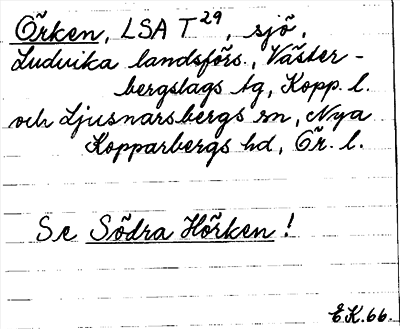 Örken, LSA T29, sjö,
Ludvika landsförs., Väster-
bergslags tg, Kopp. l.
och Ljusnarsbergs sn, Nya
Kopparbergs hd, Ör. l.
Se Södra Hörken!
E.K.66.